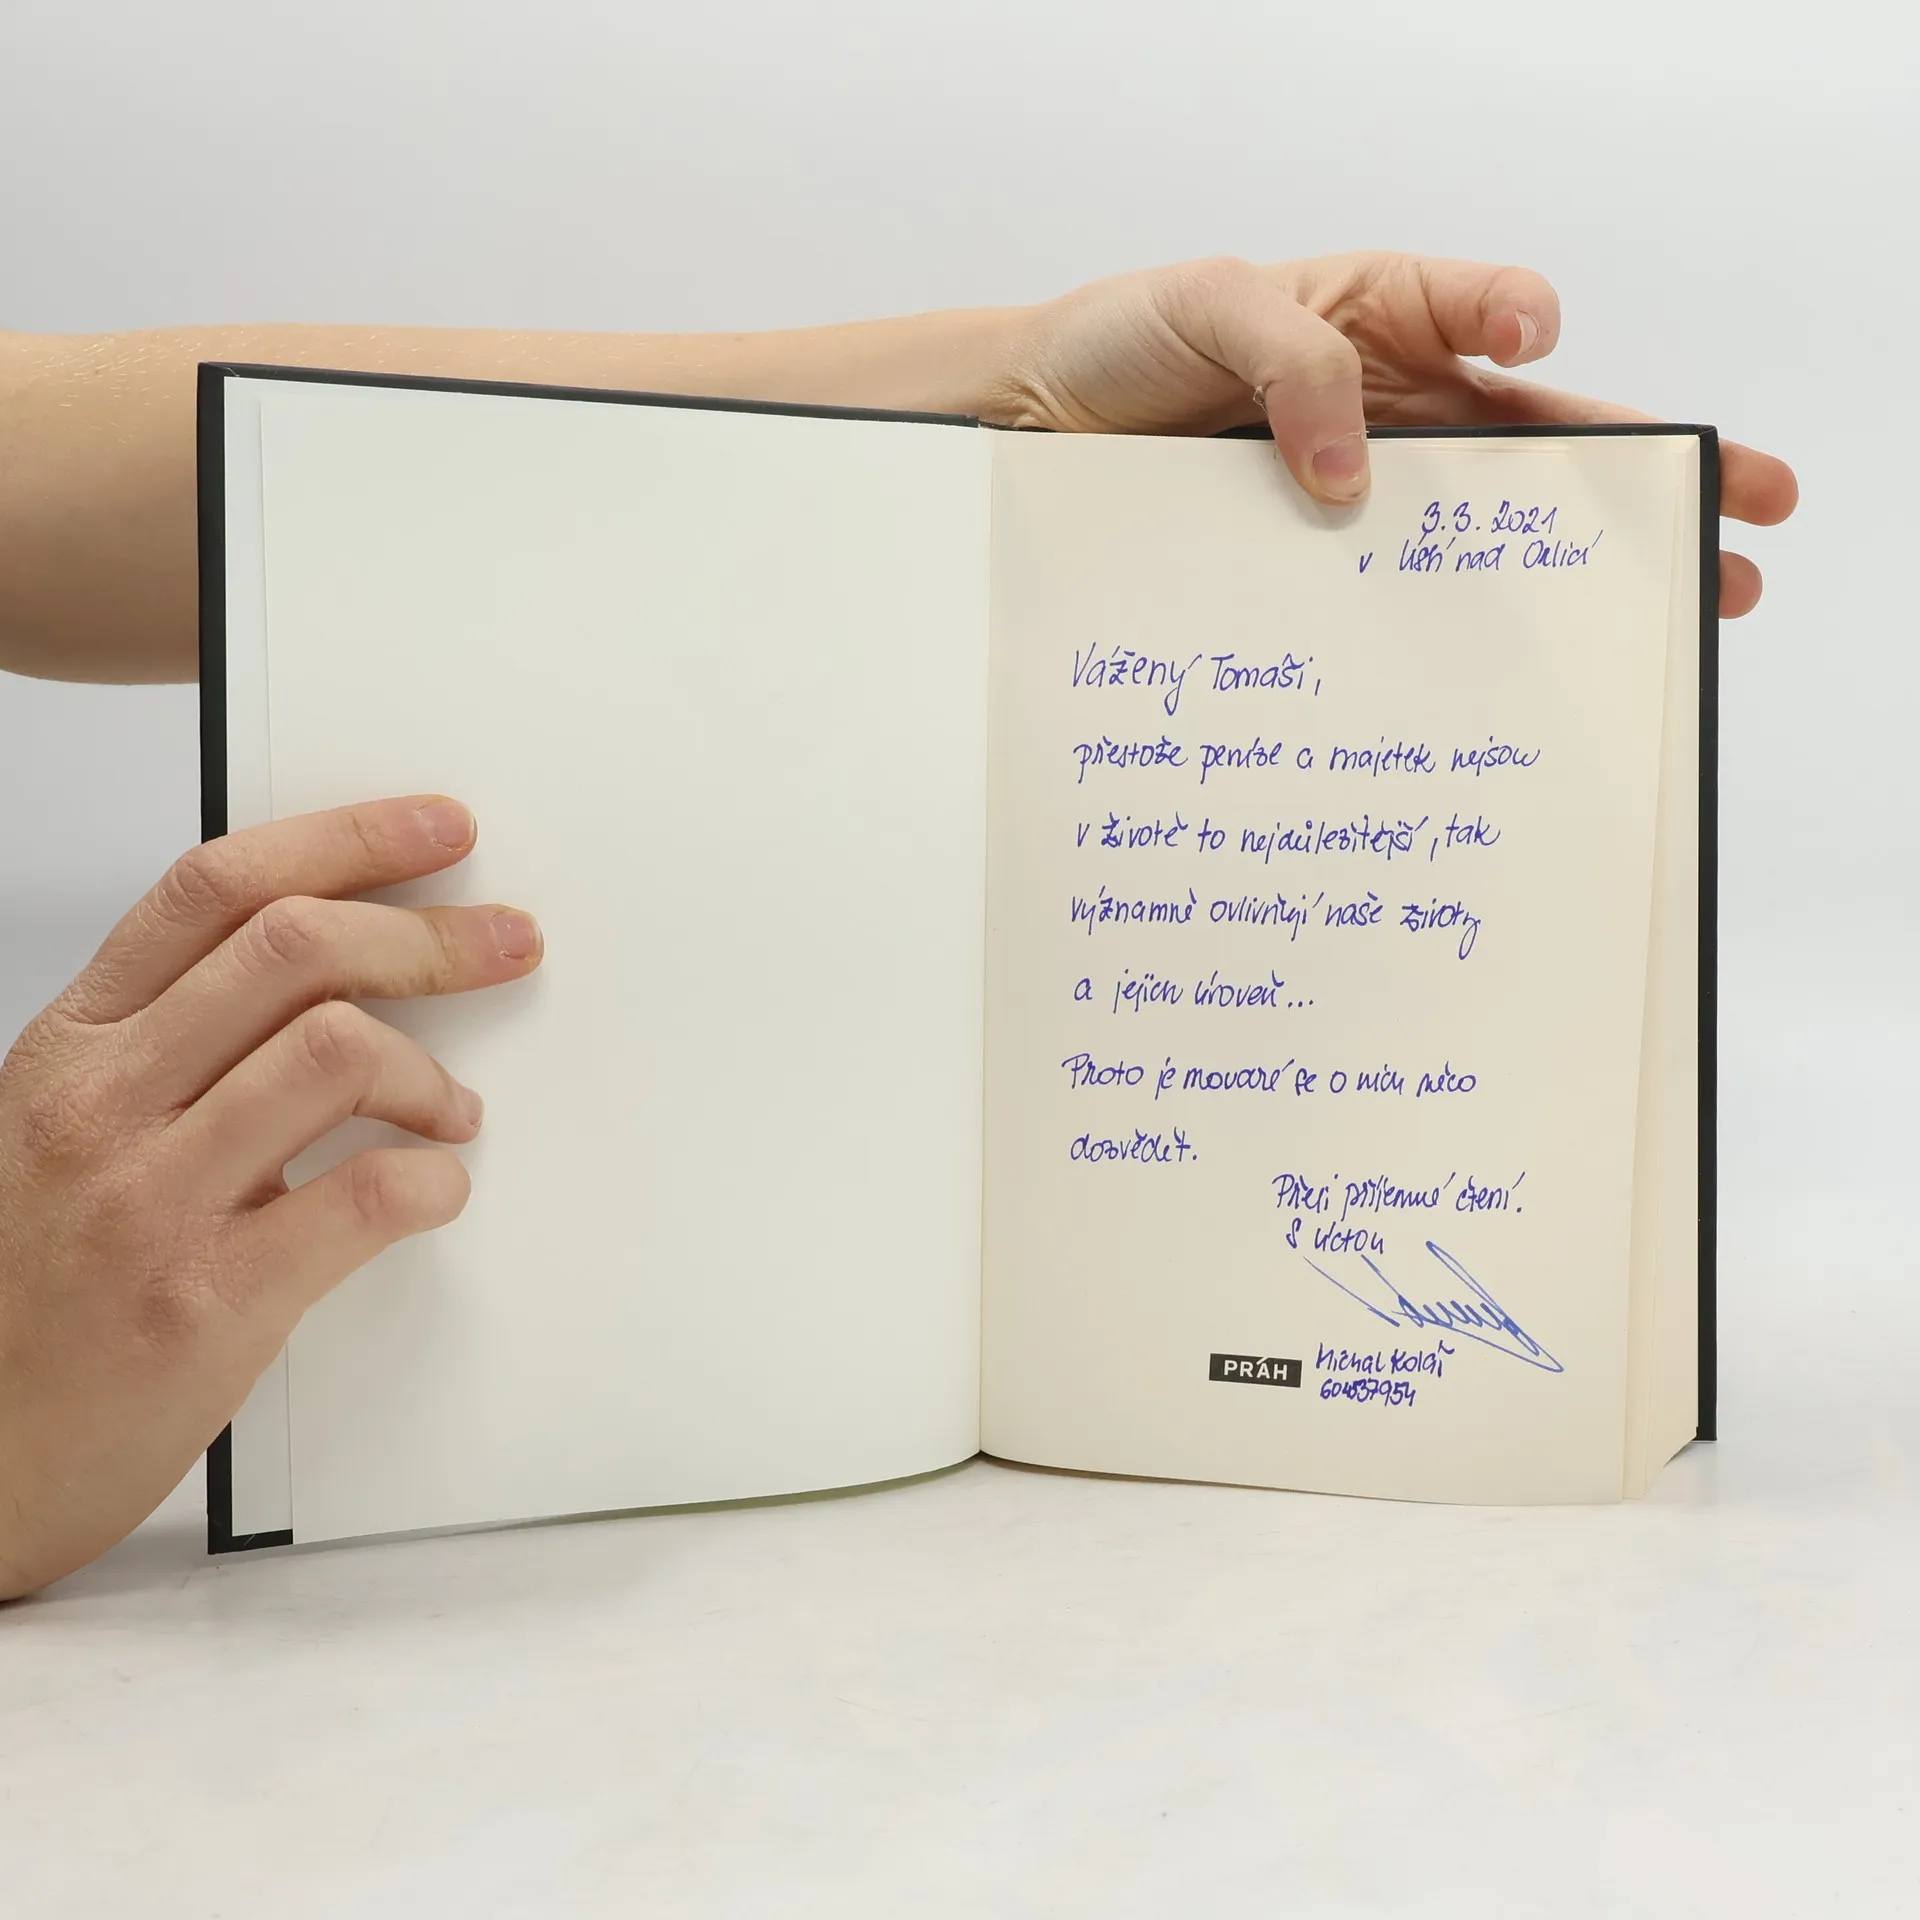 3.3.2021
v Ústí nad Orlicí
Vážený Tomáši,
přestože peníze a majetek nejsou
v životě to nejdůležitější, tak
významně ovlivňují naše životy
a jejich úroveň...
Proto je moudré se o nich něco
dozvědět.
Přeji příjemné čtení.
S úctou
PRÁH
Michal Kolář
604837954